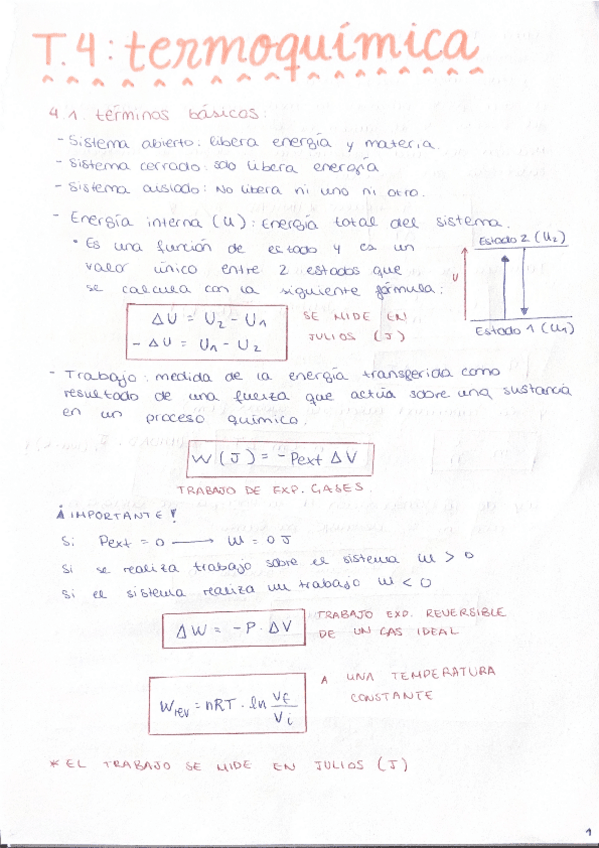 T.4: termoquímica
4.1. términos básicos:
- Sistema abierto: libera energía y materia.
- Sistema cerrado: solo libera energía
- Sistema aislado: No libera ni uno ni otro.
- Energía interna (U): Energía total del sistema.
• Es una función de estado y es un
valor único entre 2 estados que
se calcula con la siguiente fórmula:
Estado 2 (U₂)
U
Estado 1 (U₁)
ΔU = U₂ - U₁
- ΔU = U₁ - U₂
SE MIDE EN
JULIOS (J)
- Trabajo: medida de la energía transferida como
resultado de una fuerza que actúa sobre una sustancia
en un proceso químico.
W (J) = - Pext ΔV
TRABAJO DE EXP. GASES.
¡IMPORTANTE!
Si Pext = 0 ⟶ W = 0 J
Si se realiza trabajo sobre el sistema W > 0
Si el sistema realiza un trabajo W < 0
ΔW = -P · ΔV
TRABAJO EXP. REVERSIBLE
DE UN GAS IDEAL
Wrev = nRT · ln Vf/Vi
A UNA TEMPERATURA
CONSTANTE
* EL TRABAJO SE MIDE EN JULIOS (J)
1